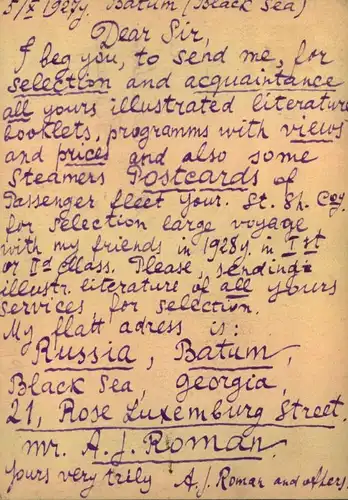 5/X 1927y. Batum (Black Sea)
Dear Sir,
I beg you, to send me, for
selection and acquaintance
all yours illustrated literature
booklets, programms with views
and prices and also some
Steamers Postcards of
Passenger fleet your. St. Sh. Coy.
for selection large voyage
with my friends in 1928y in Ist
or IId Class. Please, sending
illustr. literature of all yours
services for selection.
My flatt adress is:
Russia, Batum,
Black Sea, Georgia,
21, Rose Luxemburg Street.
mr. A. J. Roman.
Yours very trily A. J. Roman and others.